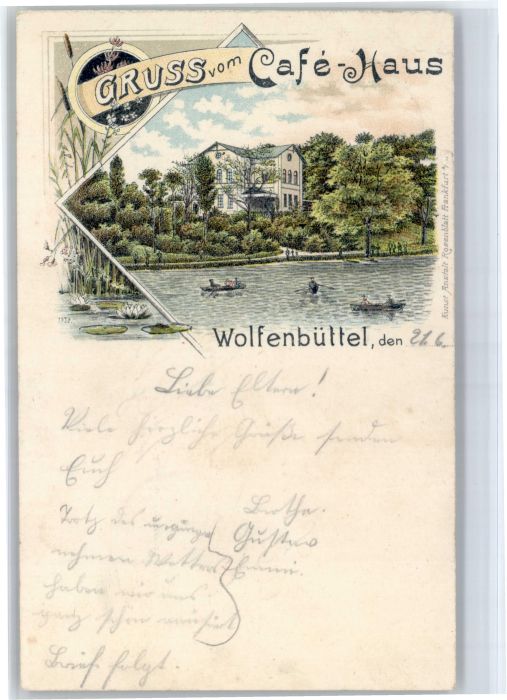 GRUSS vom Café-Haus
Kunst Anstalt Rosenblatt Frankfurt a/M
Wolfenbüttel, den 21.6.
Liebe Eltern!
Viele herzliche Grüße senden
Euch
Bertha.
Gustav
Emmi.
Trotz des unange
nehmen Wetters
haben wir uns
ganz schön amüsirt
Brief folgt.